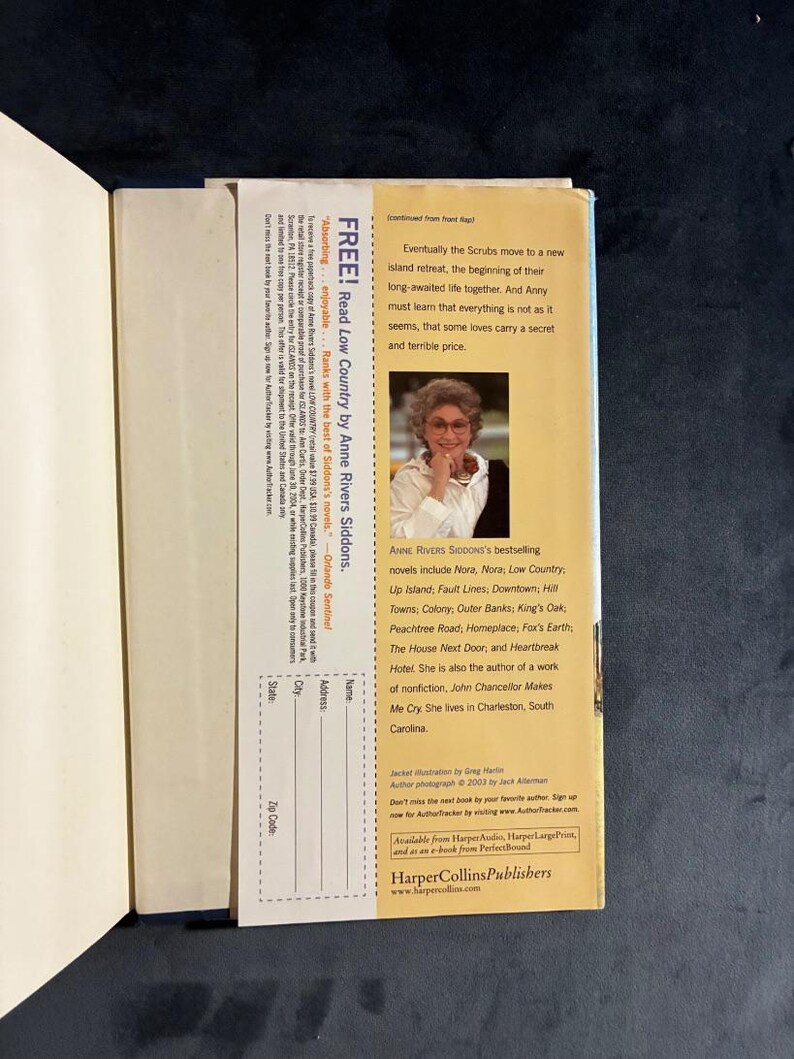 (continued from front flap)
Eventually the Scrubs move to a new
island retreat, the beginning of their
long-awaited life together. And Anny
must learn that everything is not as it
seems, that some loves carry a secret
and terrible price.
ANNE RIVERS SIDDONS's bestselling
novels include Nora, Nora; Low Country;
Up Island; Fault Lines; Downtown; Hill
Towns; Colony; Outer Banks; King's Oak;
Peachtree Road; Homeplace; Fox's Earth;
The House Next Door; and Heartbreak
Hotel. She is also the author of a work
of nonfiction, John Chancellor Makes
Me Cry. She lives in Charleston, South
Carolina.
Jacket illustration by Greg Harlin
Author photograph © 2003 by Jack Alterman
Don't miss the next book by your favorite author. Sign up
now for AuthorTracker by visiting www.AuthorTracker.com.
Available from HarperAudio, HarperLargePrint,
and as an e-book from PerfectBound
HarperCollinsPublishers
www.harpercollins.com
FREE! Read Low Country by Anne Rivers Siddons.
"Absorbing . . . enjoyable . . . Ranks with the best of Siddons's novels." —Orlando Sentinel
To receive a free paperback copy of Anne Rivers Siddons's novel LOW COUNTRY (retail value $7.99 USA; $10.99 Canada), please fill in this coupon and send it with
the retail store register receipt or comparable proof of purchase for ISLANDS to: Ann Curtis, Order Dept., HarperCollins Publishers, 1000 Keystone Industrial Park,
Scranton, PA 18512. Please circle the entry for ISLANDS on the receipt. Offer valid through June 30, 2004, or while existing supplies last. Open only to consumers
and limited to one free copy per person. This offer is valid for shipment to the United States and Canada only.
Don't miss the next book by your favorite author. Sign up now for AuthorTracker by visiting www.AuthorTracker.com.
Name:
Address:
City:
State: Zip Code: